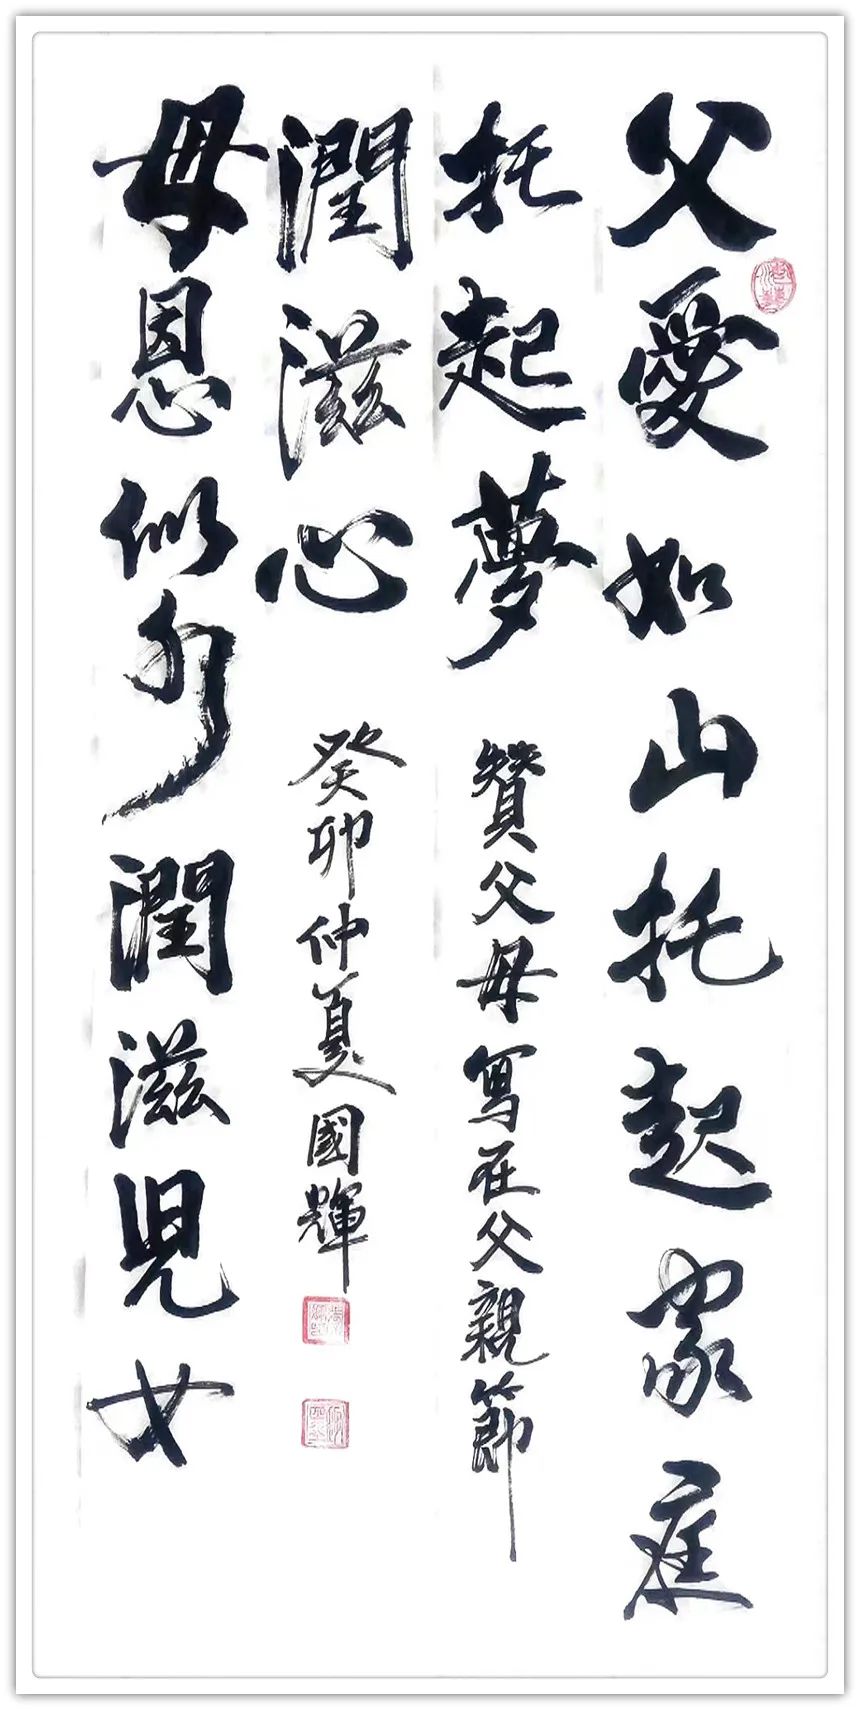 父愛如山托起家庭
托起夢
贊父母寫在父親節
潤滋心
癸卯仲夏國輝
母恩似水潤滋児女